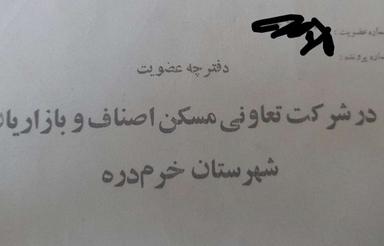 شماره عضویت :
شماره پرونده :
دفترچه عضویت
در شرکت تعاونی مسکن اصناف و بازاریان
شهرستان خرم‌دره